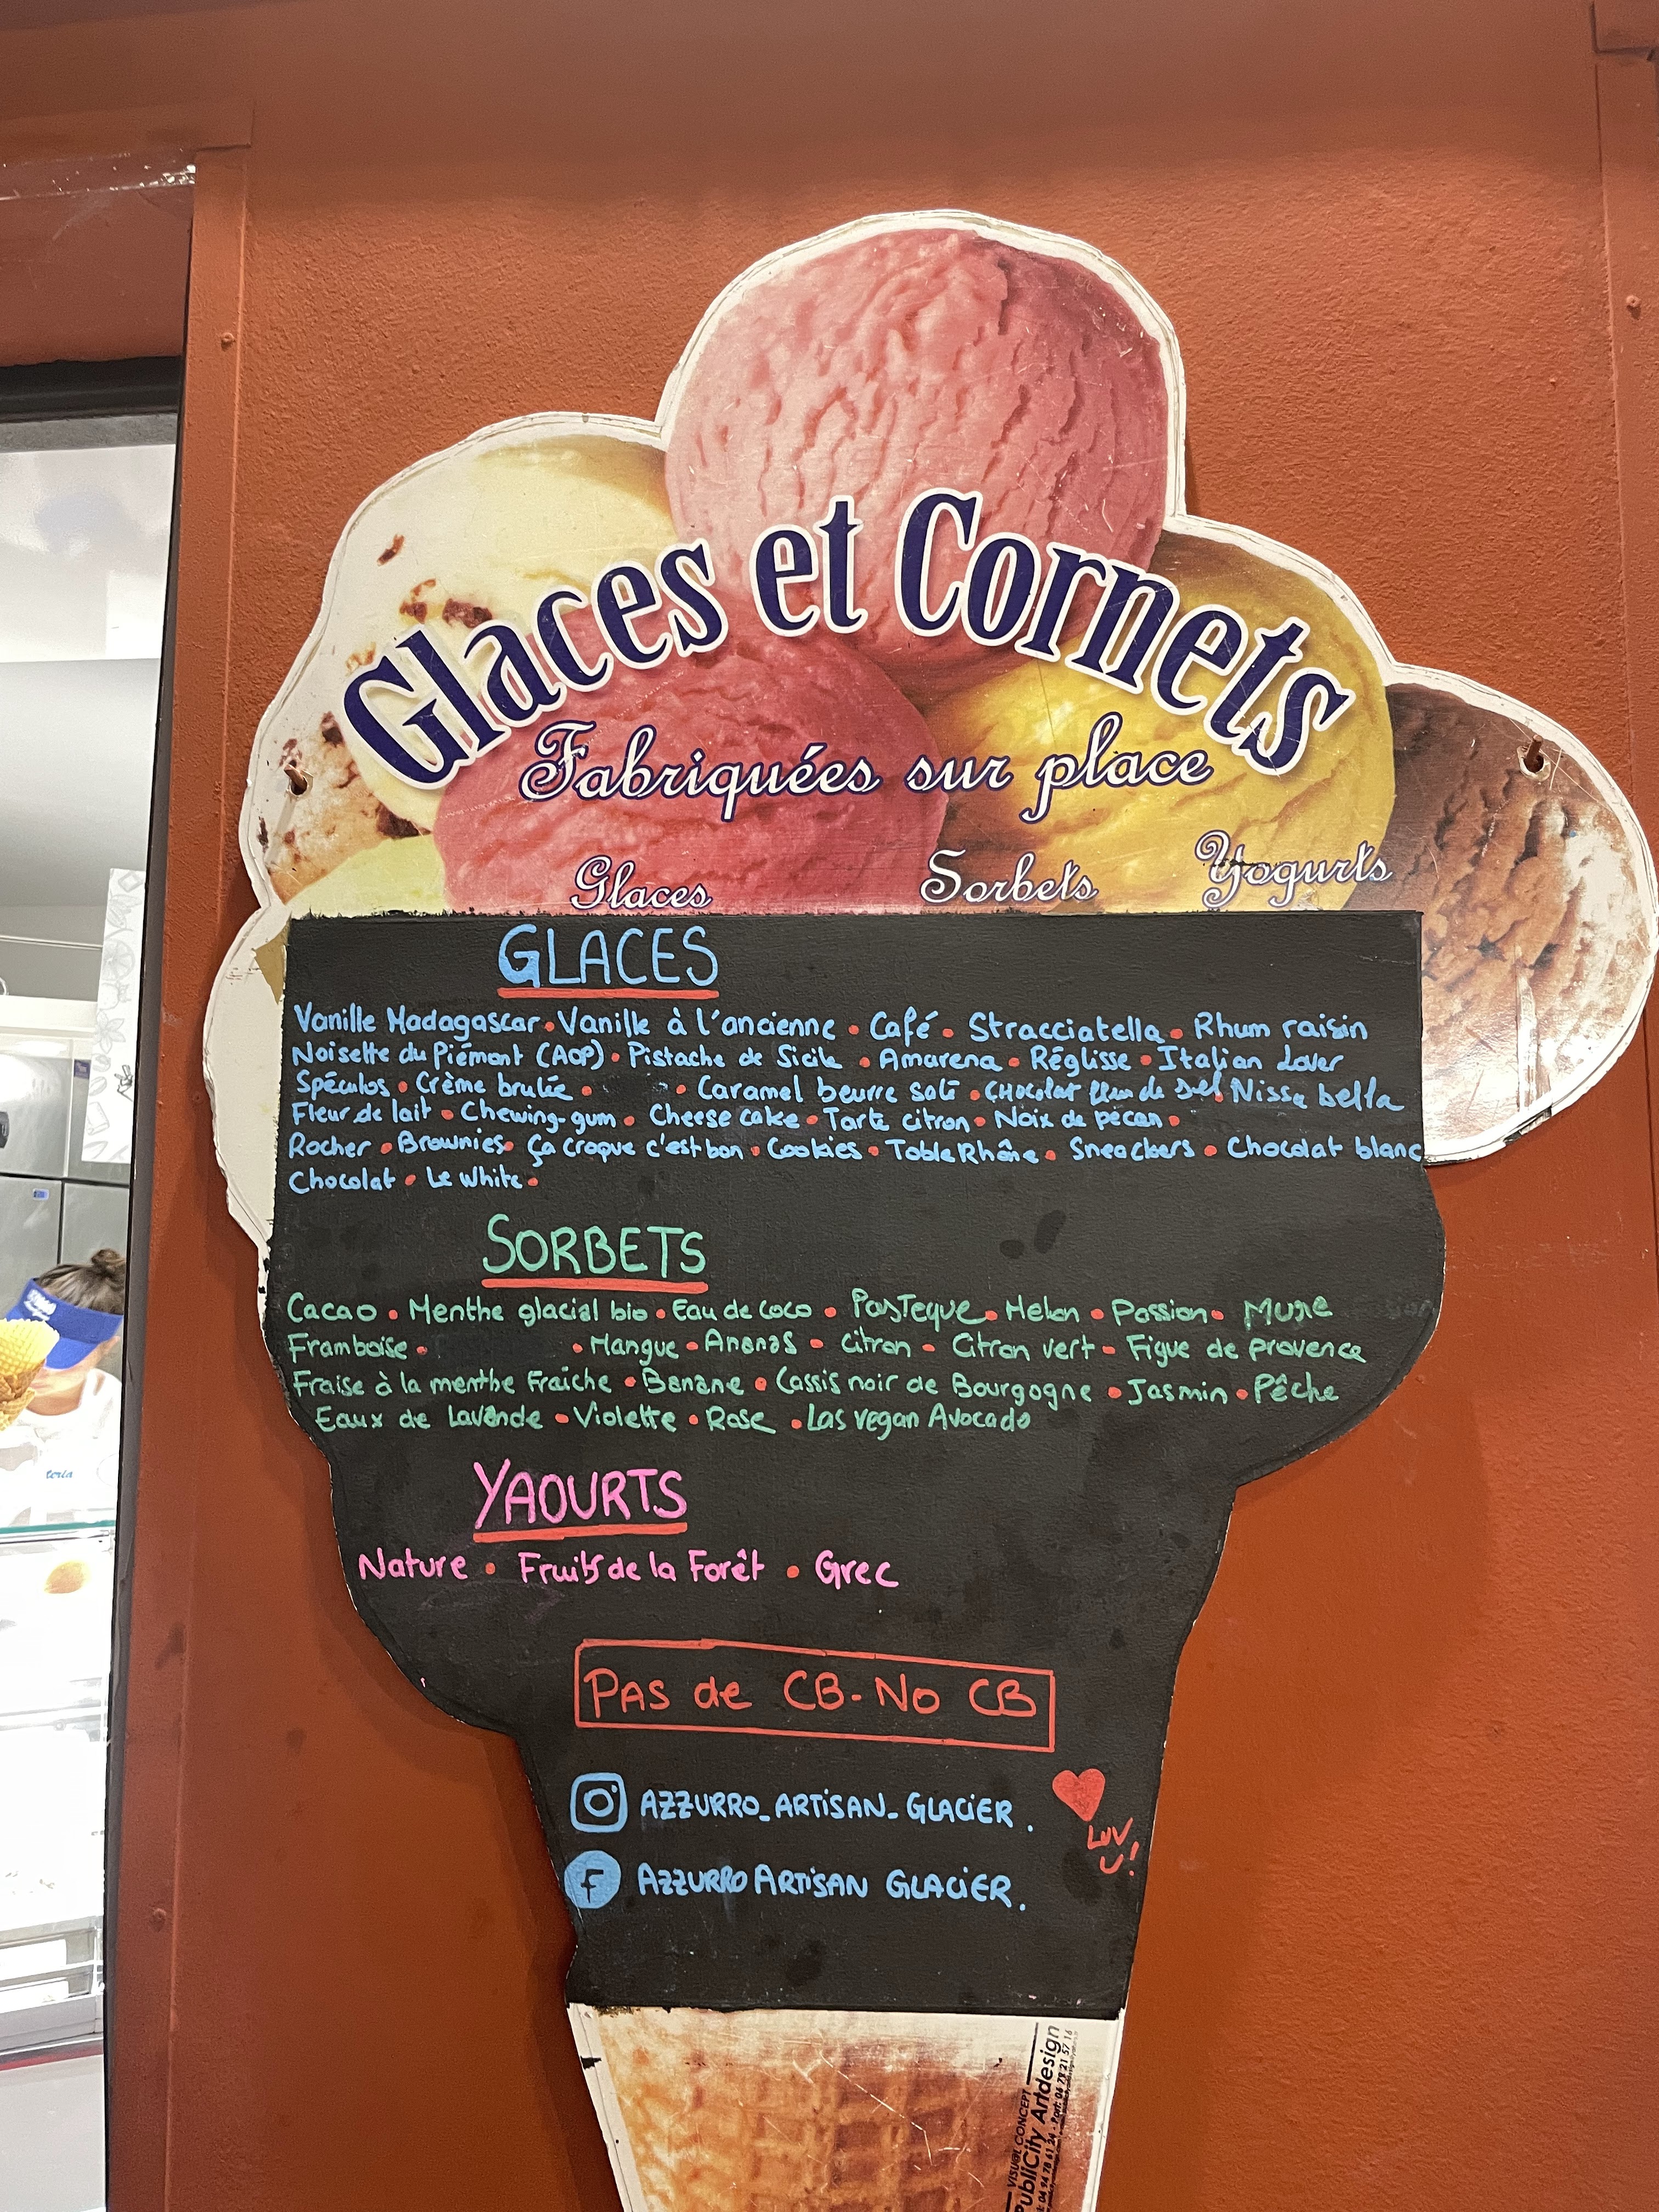 Glaces et Cornets
Fabriquées sur place
Glaces Sorbets Yogurts
GLACES
Vanille Madagascar • Vanille à l'ancienne • Café • Stracciatella • Rhum raisin
Noisette du Piémont (AOP) • Pistache de Sicile • Amarena • Réglisse • Italian Lover
Spéculos • Crème brulée • • Caramel beurre salé • CHocolat fleur de sel • Nissa bella
Fleur de lait • Chewing-gum • Cheese cake • Tarte citron • Noix de pécan •
Rocher • Brownies • Ça croque c'est bon • Cookies • TobleRhône • Sneackers • Chocolat blanc
Chocolat • Le White •
SORBETS
Cacao • Menthe glacial bio • Eau de coco • PasTeque • Melon • Passion • Mure
Framboise • • Mangue • Ananas • Citron • Citron vert • Figue de provence
Fraise à la menthe Fraîche • Banane • Cassis noir de Bourgogne • Jasmin • Pêche
Eaux de Lavande • Violette • Rose • Las vegan Avocado
YAOURTS
Nature • Fruits de la Forêt • Grec
PAS de CB - No CB
AZZURRO_ARTiSAN_GLACiER.
LUV
U!
AZZURRO ARTiSAN GLACiER.
VISUAL CONCEPT
PubliCity Artdesign
04 94 78 61 24 - Port: 06 78 21 57 16